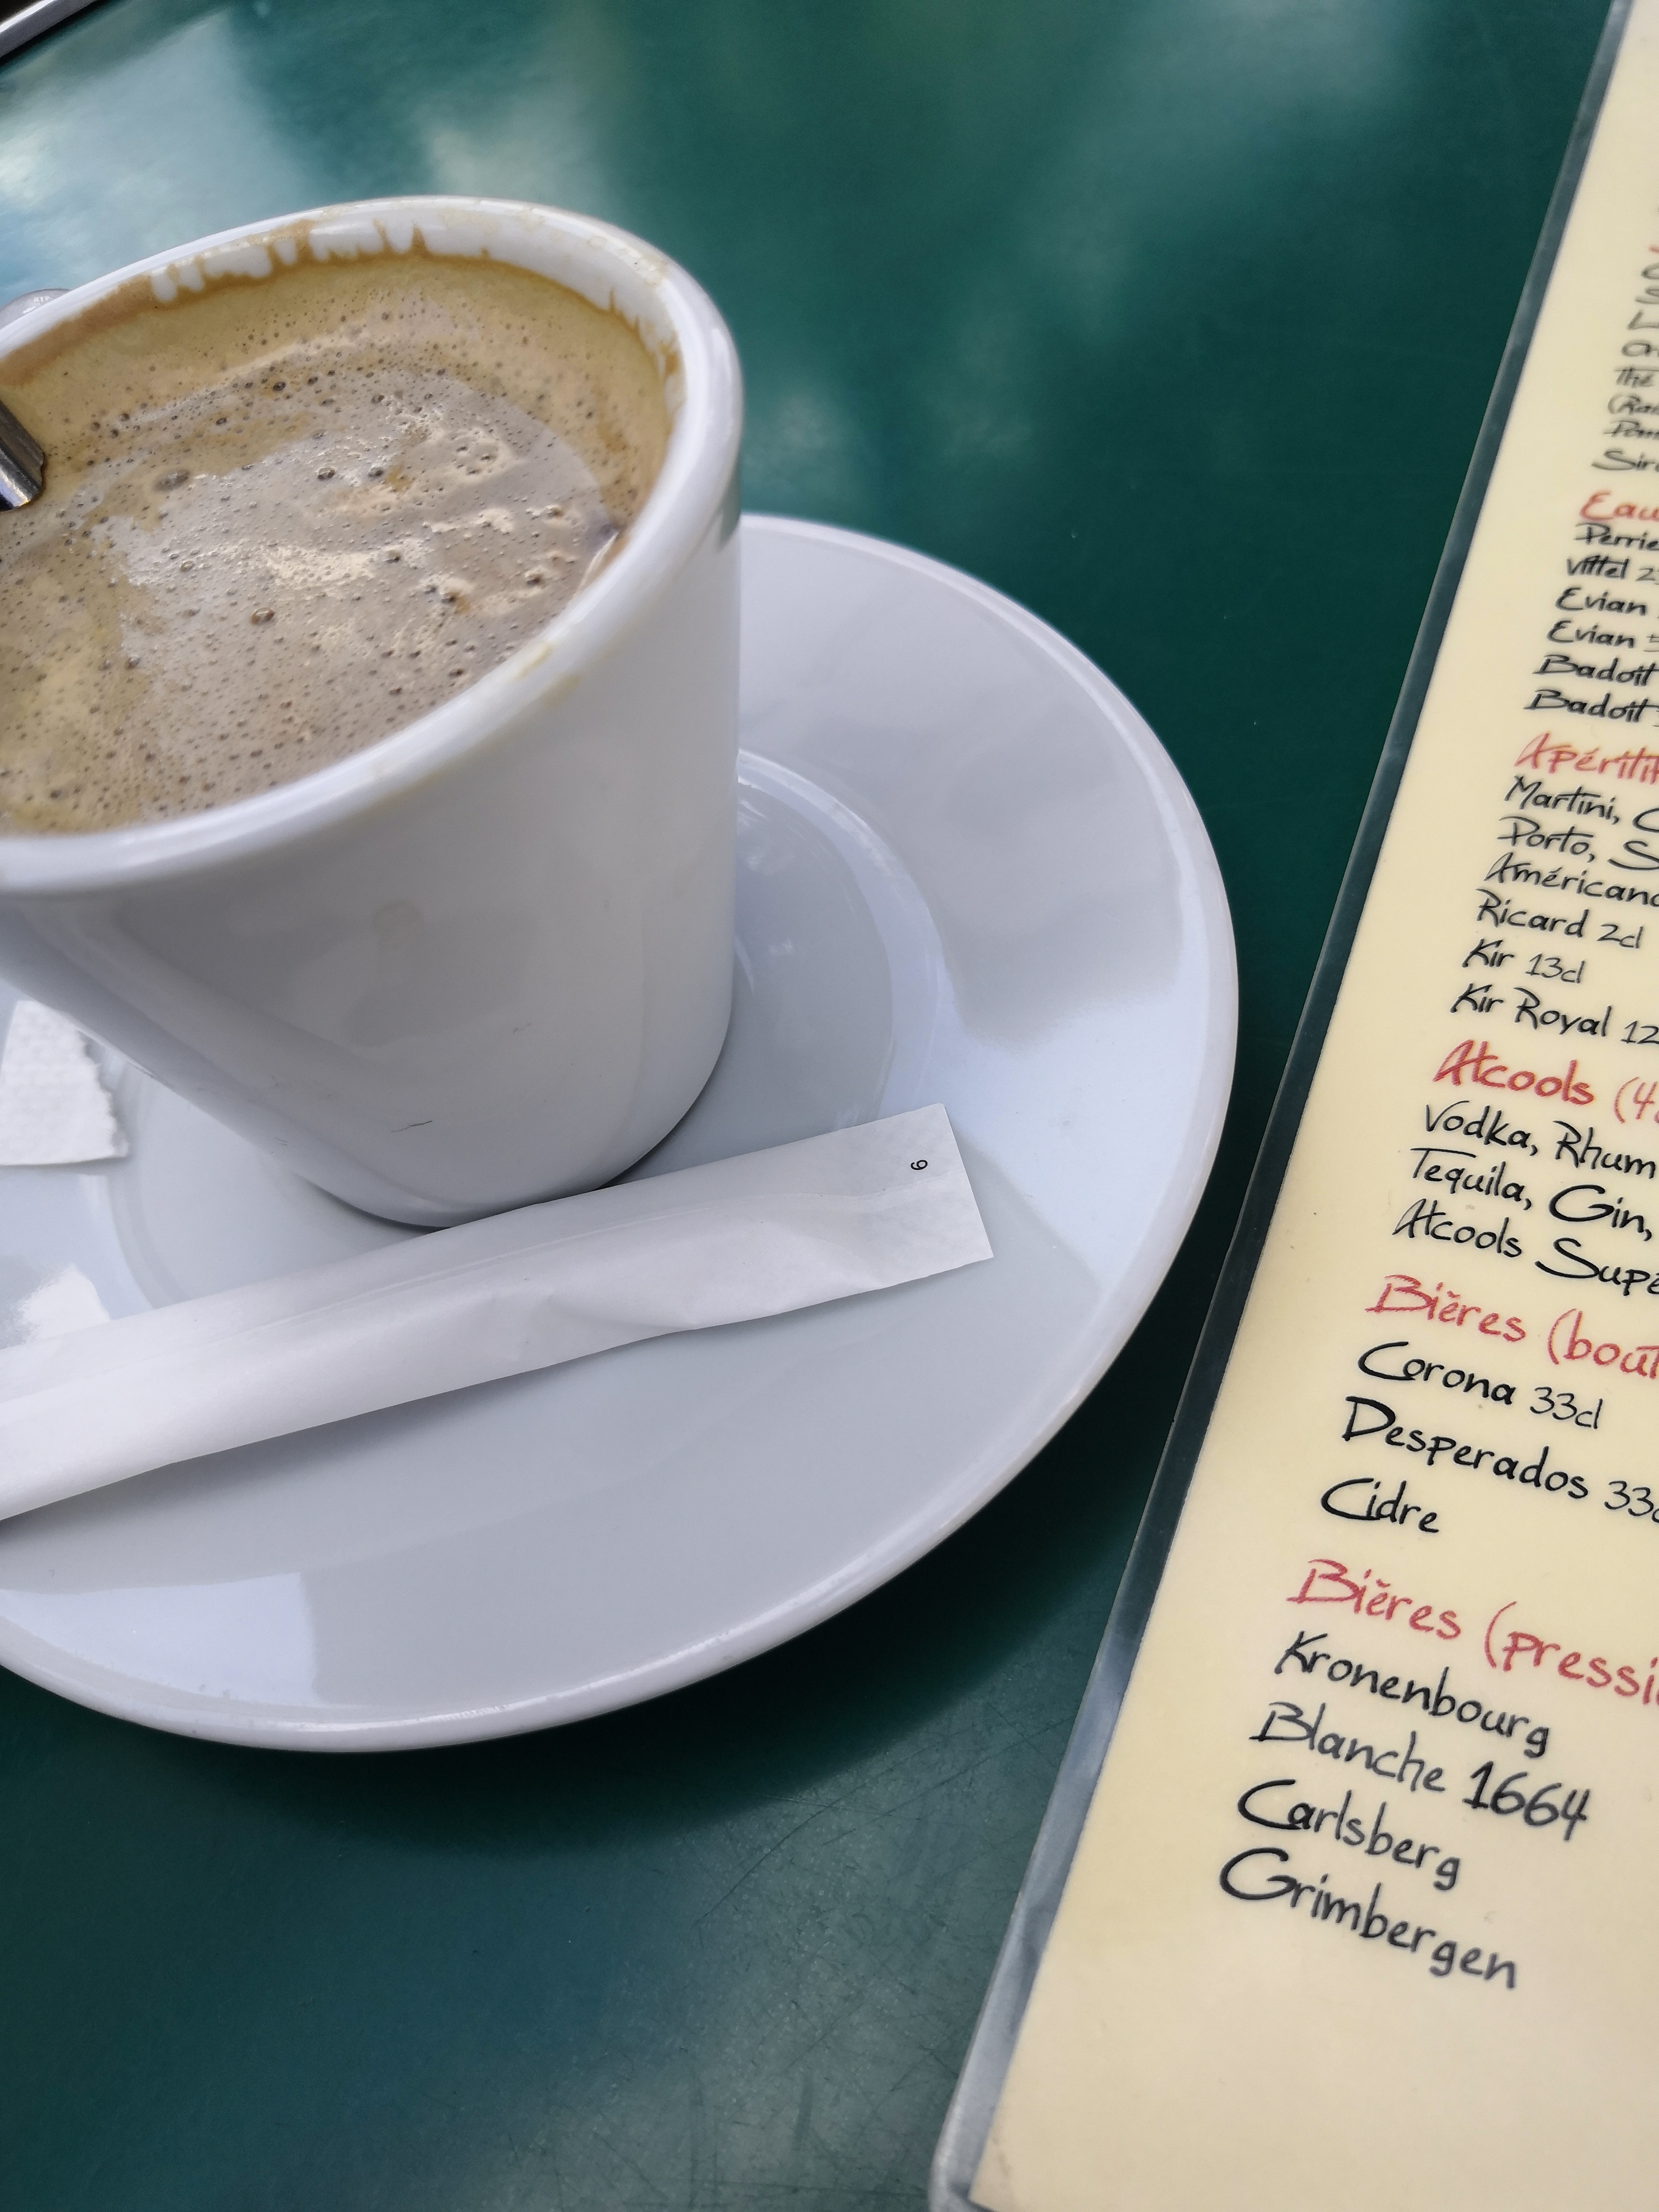 6
Thé
Eau
Perrie
Vittel 2
Evian
Evian
Badoit
Badoit
Apéritif
Martini, C
Porto, S
Américano
Ricard 2cl
Kir 13cl
Kir Royal 12
Alcools (4
Vodka, Rhum
Tequila, Gin,
Alcools Supé
Bières (bout
Corona 33cl
Desperados 33c
Cidre
Bières (pressi
Kronenbourg
Blanche 1664
Carlsberg
Grimbergen